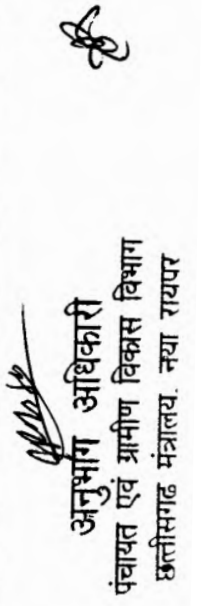 अनुभाग अधिकारी
पंचायत एवं ग्रामीण विकास विभाग
छत्तीसगढ मंत्रालय. नया रायपर